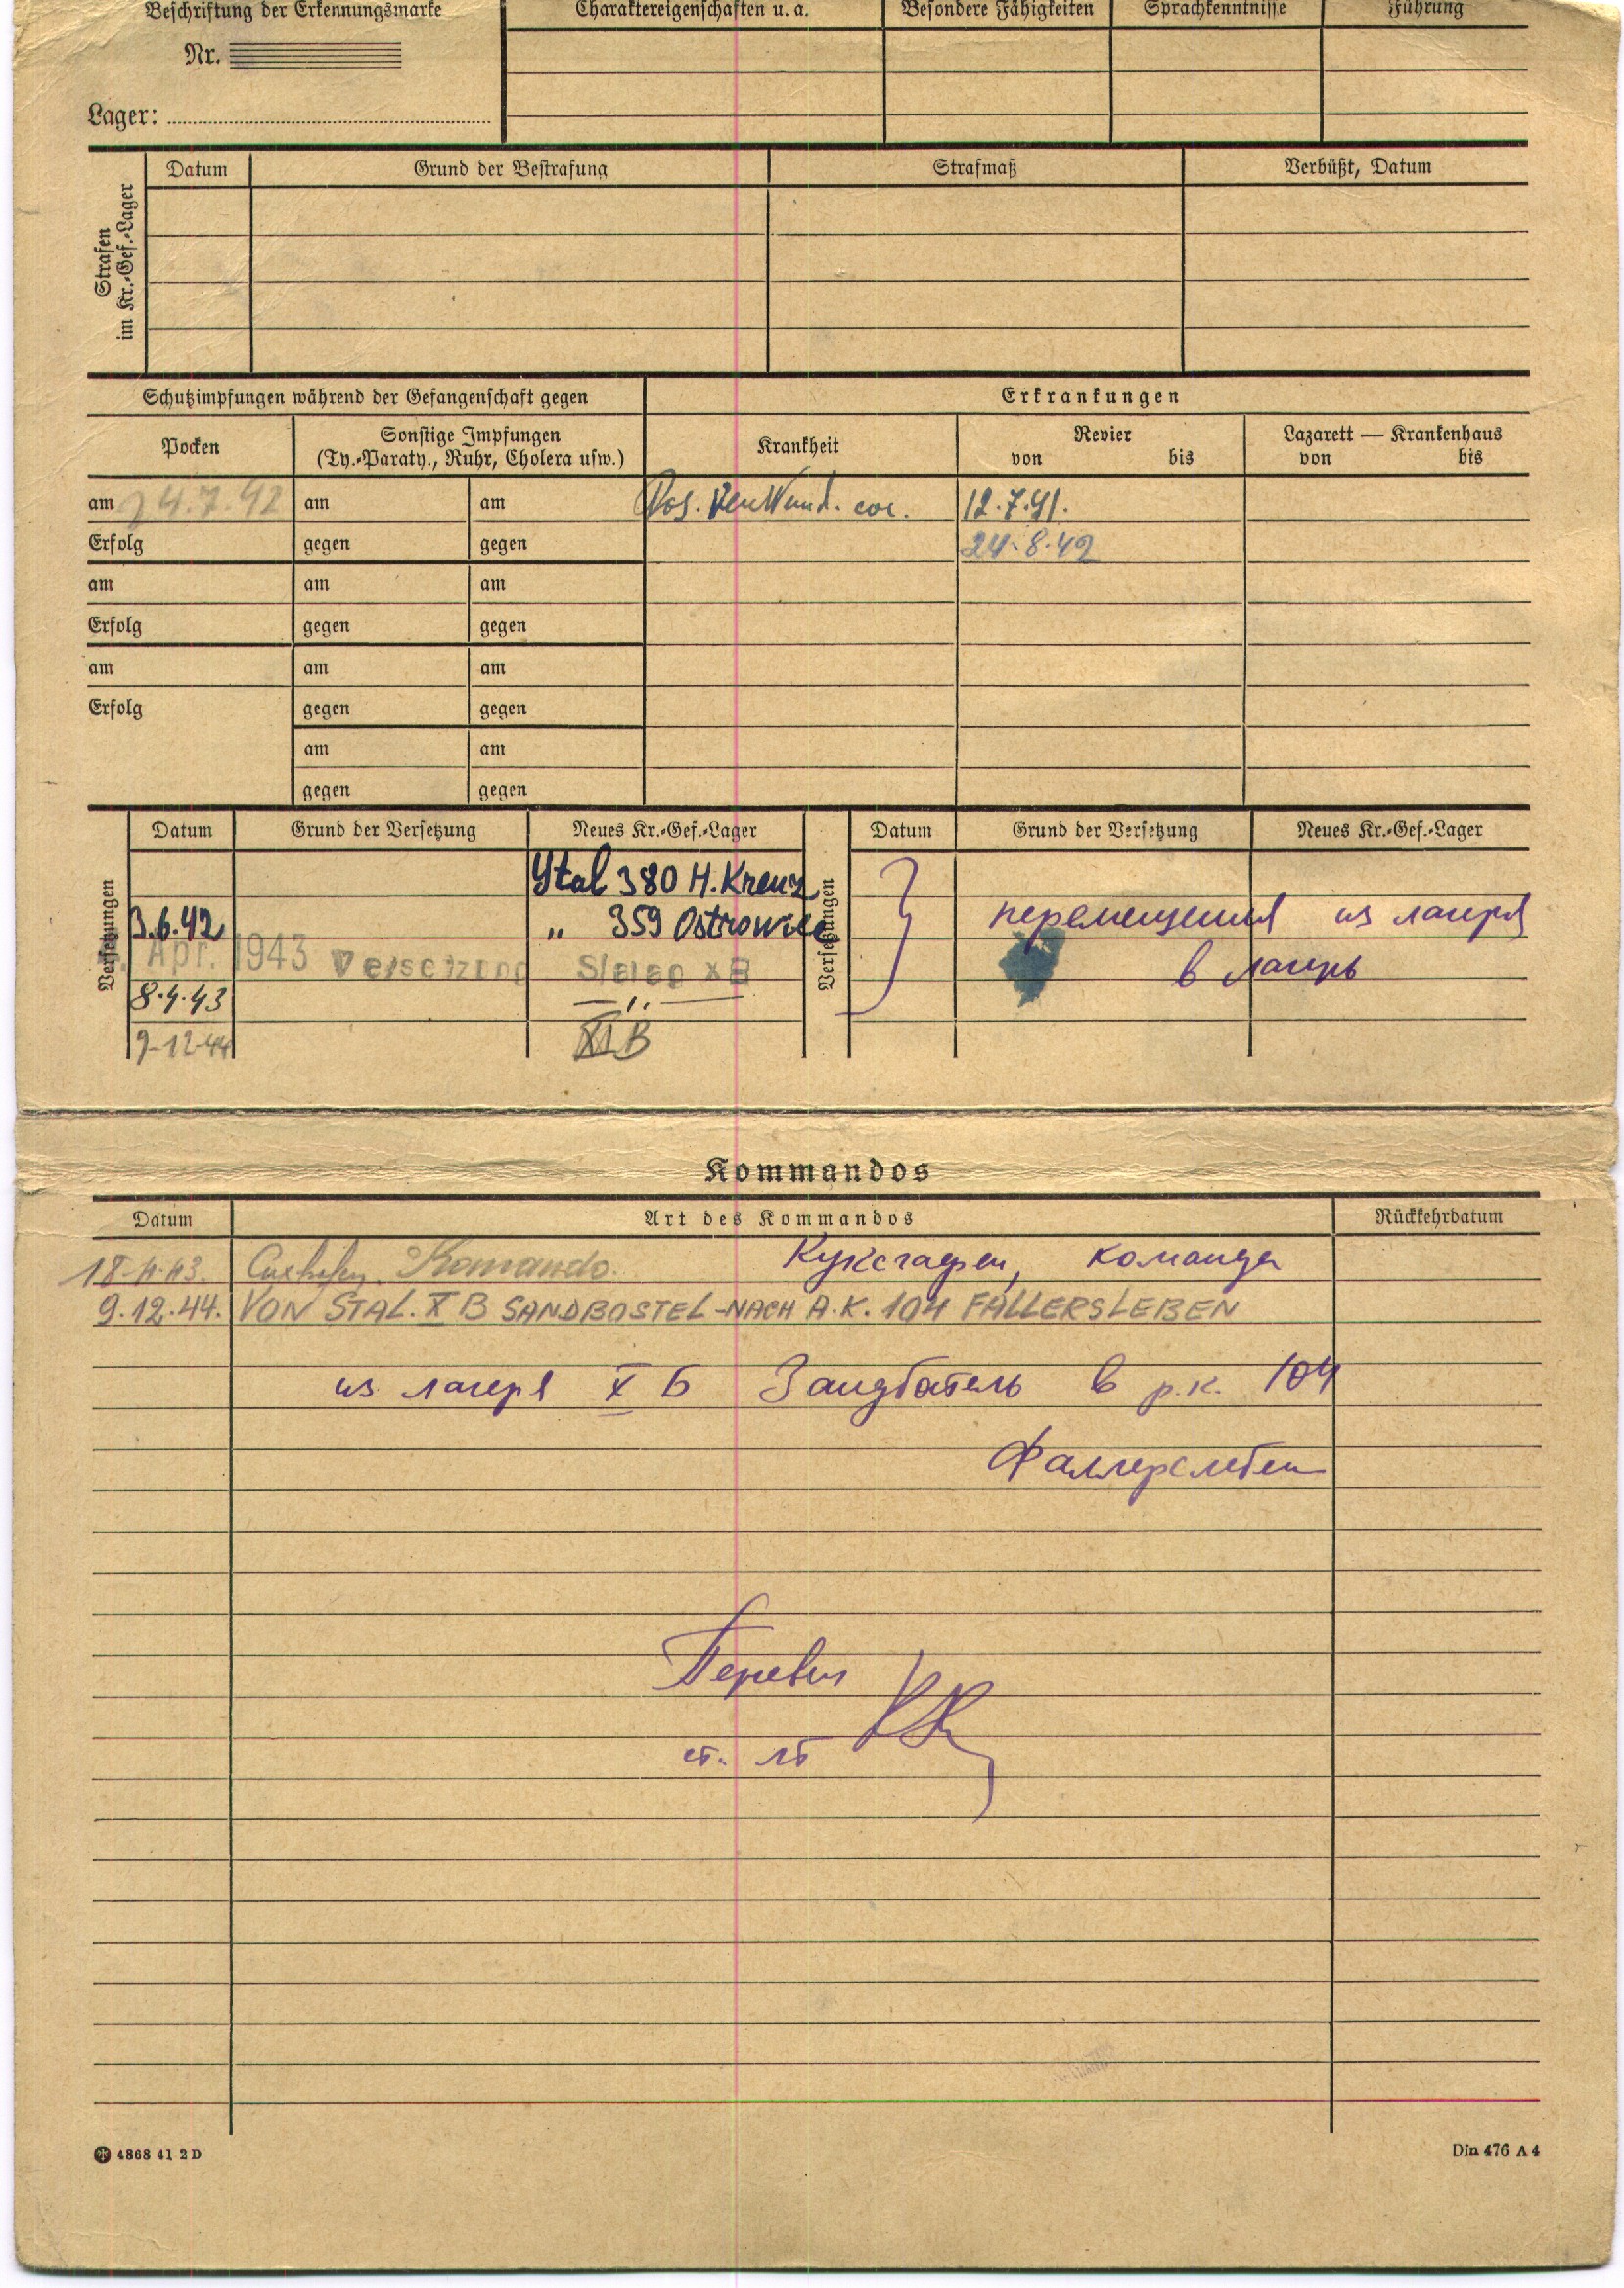 Beschriftung der Erkennungsmarke Charaktereigenschaften u. a. Besondere Fähigkeiten Sprachkenntnisse Führung
Nr.
Lager:
Strafen im Kr.-Gef.-Lager
Datum Grund der Bestrafung Strafmaß Verbüßt, Datum
Schutzimpfungen während der Gefangenschaft gegen Erkrankungen
Pocken Sonstige Impfungen Krankheit Revier Lazarett — Krankenhaus
(Ty.-Paraty., Ruhr, Cholera usw.) von bis von bis
am 24.7.42 am am 12.7.41.
Erfolg gegen gegen 24.8.42
am am am
Erfolg gegen gegen
am am am
Erfolg gegen gegen
am am
gegen gegen
Versetzungen Datum Grund der Versetzung Neues Kr.-Gef.-Lager Versetzungen Datum Grund der Versetzung Neues Kr.-Gef.-Lager
Stal 380 H. Kreuz
3.6.42 " 359 Ostrowiec перемещения из лагеря
Apr. 1943 Versetzung Stalag X B в лагерь
8.4.43 — " —
9-12-44 XI B
Kommandos
Datum Art des Kommandos Rückkehrdatum
18-4-43. Cuxhafen. Komando. Куксгафен, команда
9.12.44. VON STAL. X B SANDBOSTEL-NACH A.K. 104 FALLERSLEBEN
из лагеря X Б Зандбатель в р.к. 104
Фаллерслебен
Перевел
ст. лт
4868 41 2 D Din 476 A 4